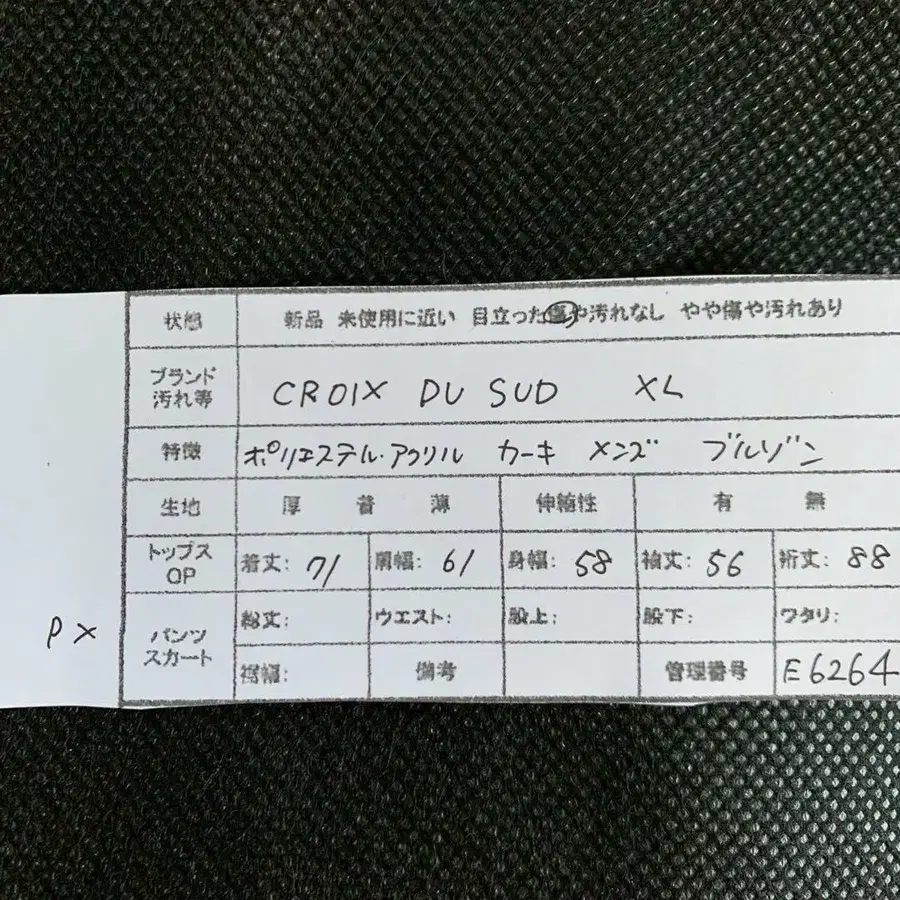 状態 新品 未使用に近い 目立った傷や汚れなし やや傷や汚れあり
ブランド
汚れ等 CROIX DU SUD XL
特徴 ポリエステル・アクリル カーキ メンズ ブルゾン
生地 厚 普 薄 伸縮性 有 無
トップス
OP 着丈: 71 肩幅: 61 身幅: 58 袖丈: 56 裄丈: 88
P X
パンツ
スカート 総丈: ウエスト: 股上: 股下: ワタリ:
裾幅: 備考 管理番号 E6264